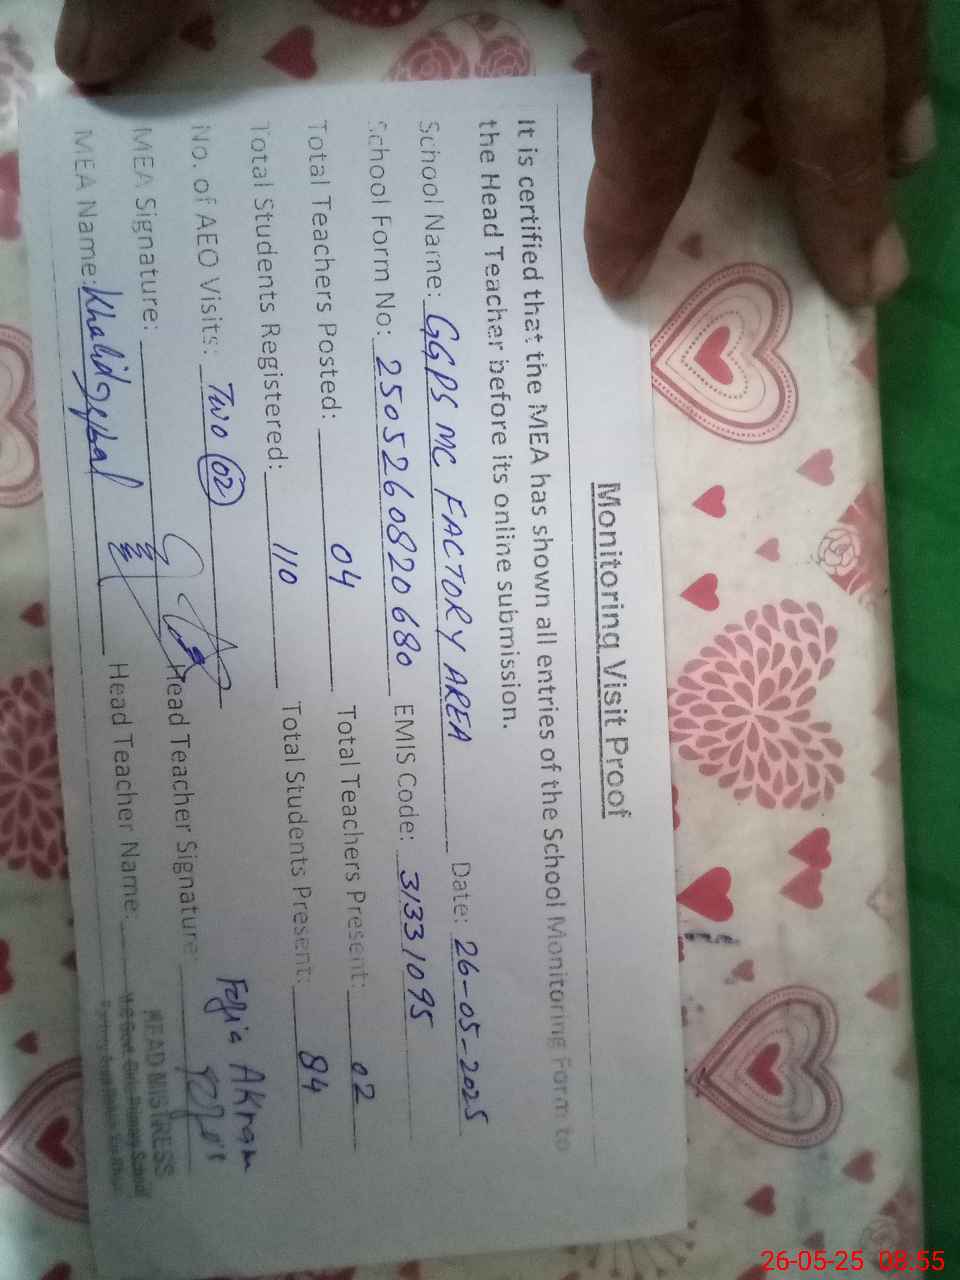 Monitoring Visit Proof
It is certified that the MEA has shown all entries of the School Monitoring Form to
the Head Teacher before its online submission.
School Name: GGPS MC FACTORY AREA Date: 26-05-2025
School Form No: 2505260820680 EMIS Code: 31331095
Total Teachers Posted: 04 Total Teachers Present: 02
Total Students Registered: 110 Total Students Present: 84
No. of AEO Visits: Two 02
MEA Signature: Head Teacher Signature: AKram
MEA Name: Khalid Iqbal Head Teacher Name:
HEAD MISTRESS
26-05-25 08:55